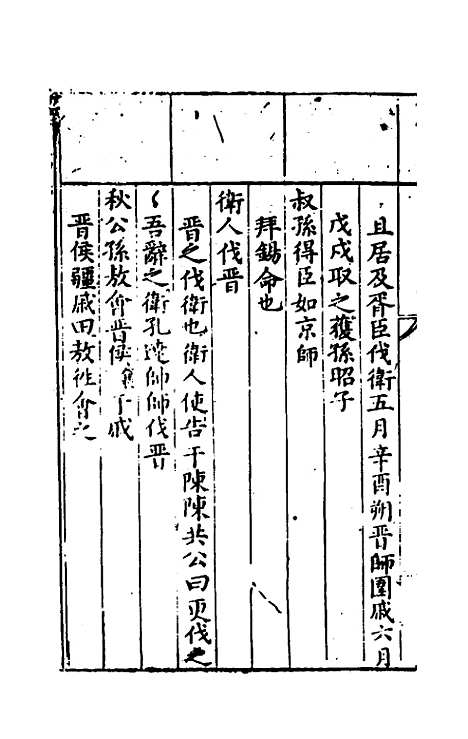 且居及胥臣伐衛五月辛酉朔晋師圍戚六月
戊戌取之獲孫昭子
叔孫得臣如京師
拜錫命也
衛人伐晋
晋之伐衛也衛人使告于陳陳共公曰更伐之
吾辭之衛孔達帥師伐晋
秋公孫敖會晋侯于戚
晋侯疆戚田敖徃會之